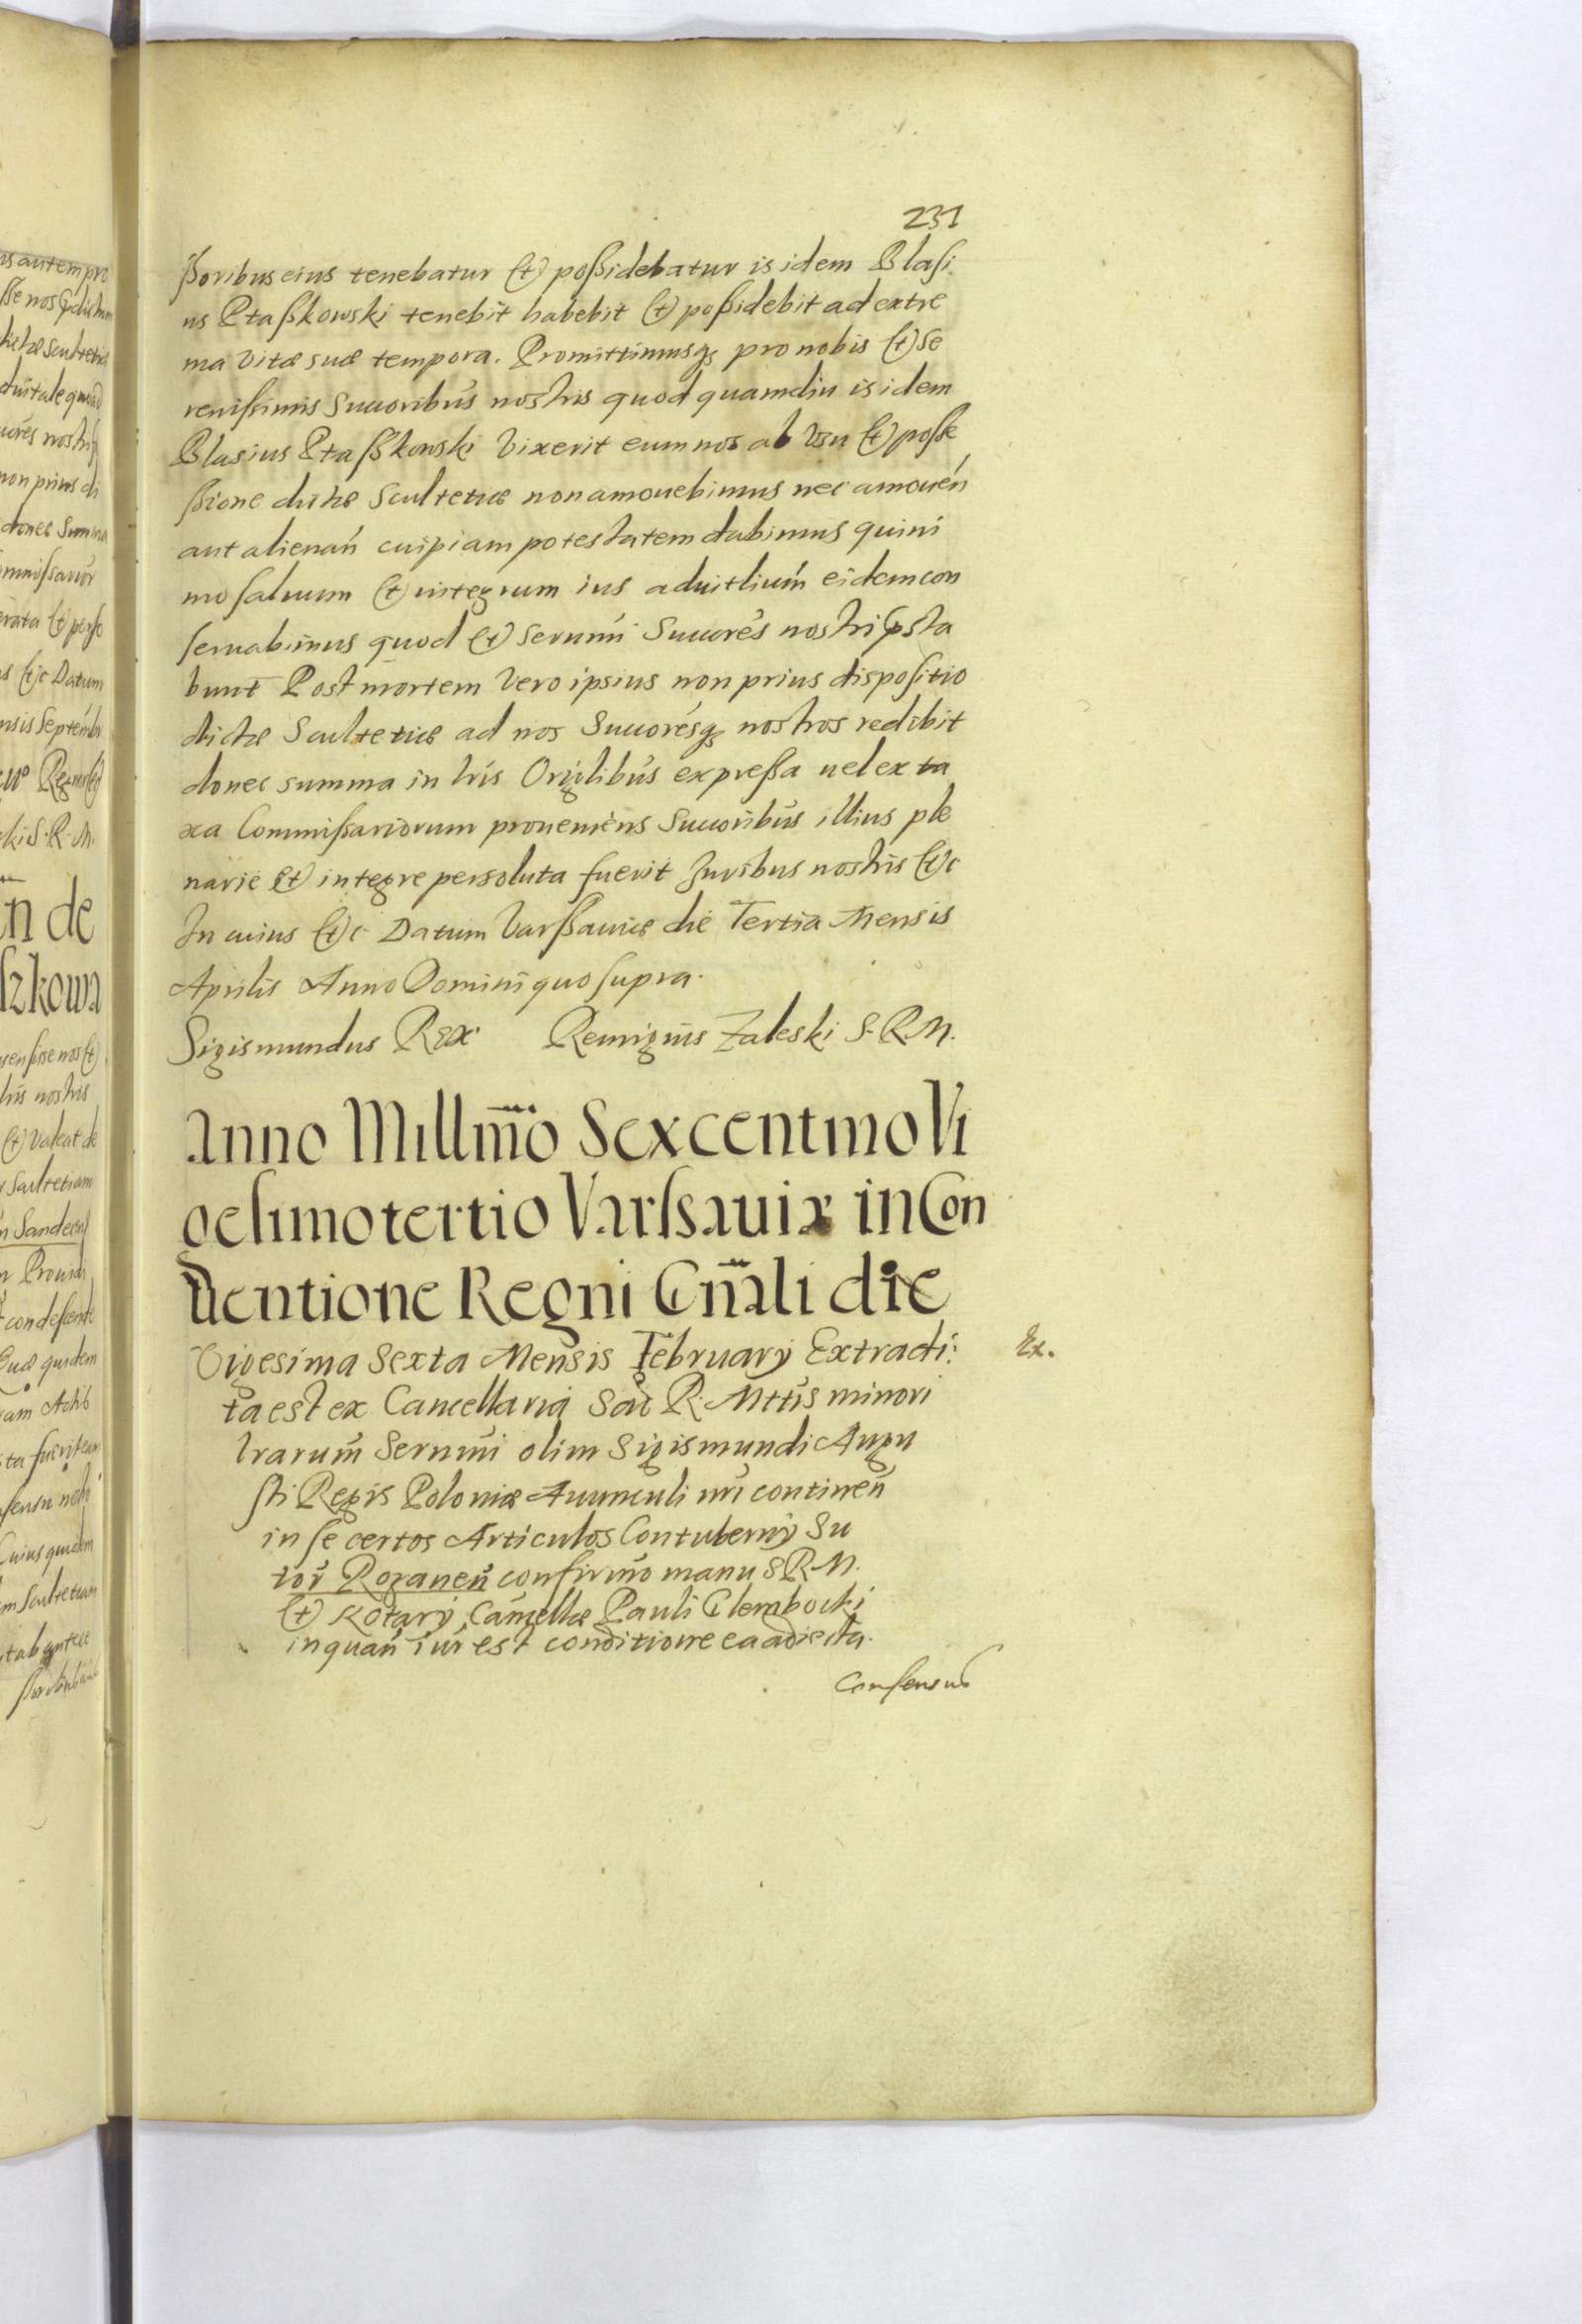 231
ßoribus eius tenebatur et poßidebatur is idem Blasi
us Ptaßkowski tenebit habebit et poßidebit ad extre
ma vitæ suæ tempora. Promittimusq pro nobis et Se
renißimis Succoribus nostris quod quamdiu is idem
Blasius Ptaßkowski vixerit eum nos ab vsu et poße
ßione dictæ Scultetiæ non amouebimus nec amouen
aut alienan cuipiam potestatem dabimus quini
mo saluum et integrum ius aduitlium eidem con
seruabimus quod et Serenmi Succores nostri psta
bunt Post mortem vero ipsius non prius dispositio
dictæ Scultetiæ ad nos Succoresq nostros redibit
donec summa in lris Origlibus expreßa uel ex ta
xa Commißariorum proueniens Succoribus illius ple
narie et integre persoluta fuerit Juribus nostris etc
In cuius etc Datum Varßauiæ die Tertia Mensis
Aprilis Anno Domini quo supra.
Sigismundus Rex Remigius Zaleski S. R. M.
Anno Millmo Sexcentmo Vi
gesimotertio Varssauiæ in Con
uentione Regni Gnali die
Vigesima Sexta Mensis February Extradi:
Ex.
ta est ex Cancellaria Sac R. Mttis minori
lrarum Sernmi olim Sigismundi Augu
sti Regis Poloniæ Auunculi nri continen
in se certos Articulos Contuberny Su
tor Rozanen confirmo manu S R M.
et Notary Cancellæ Pauli Glembocki
in quan iur est conditione ea adiecta.
Consensus